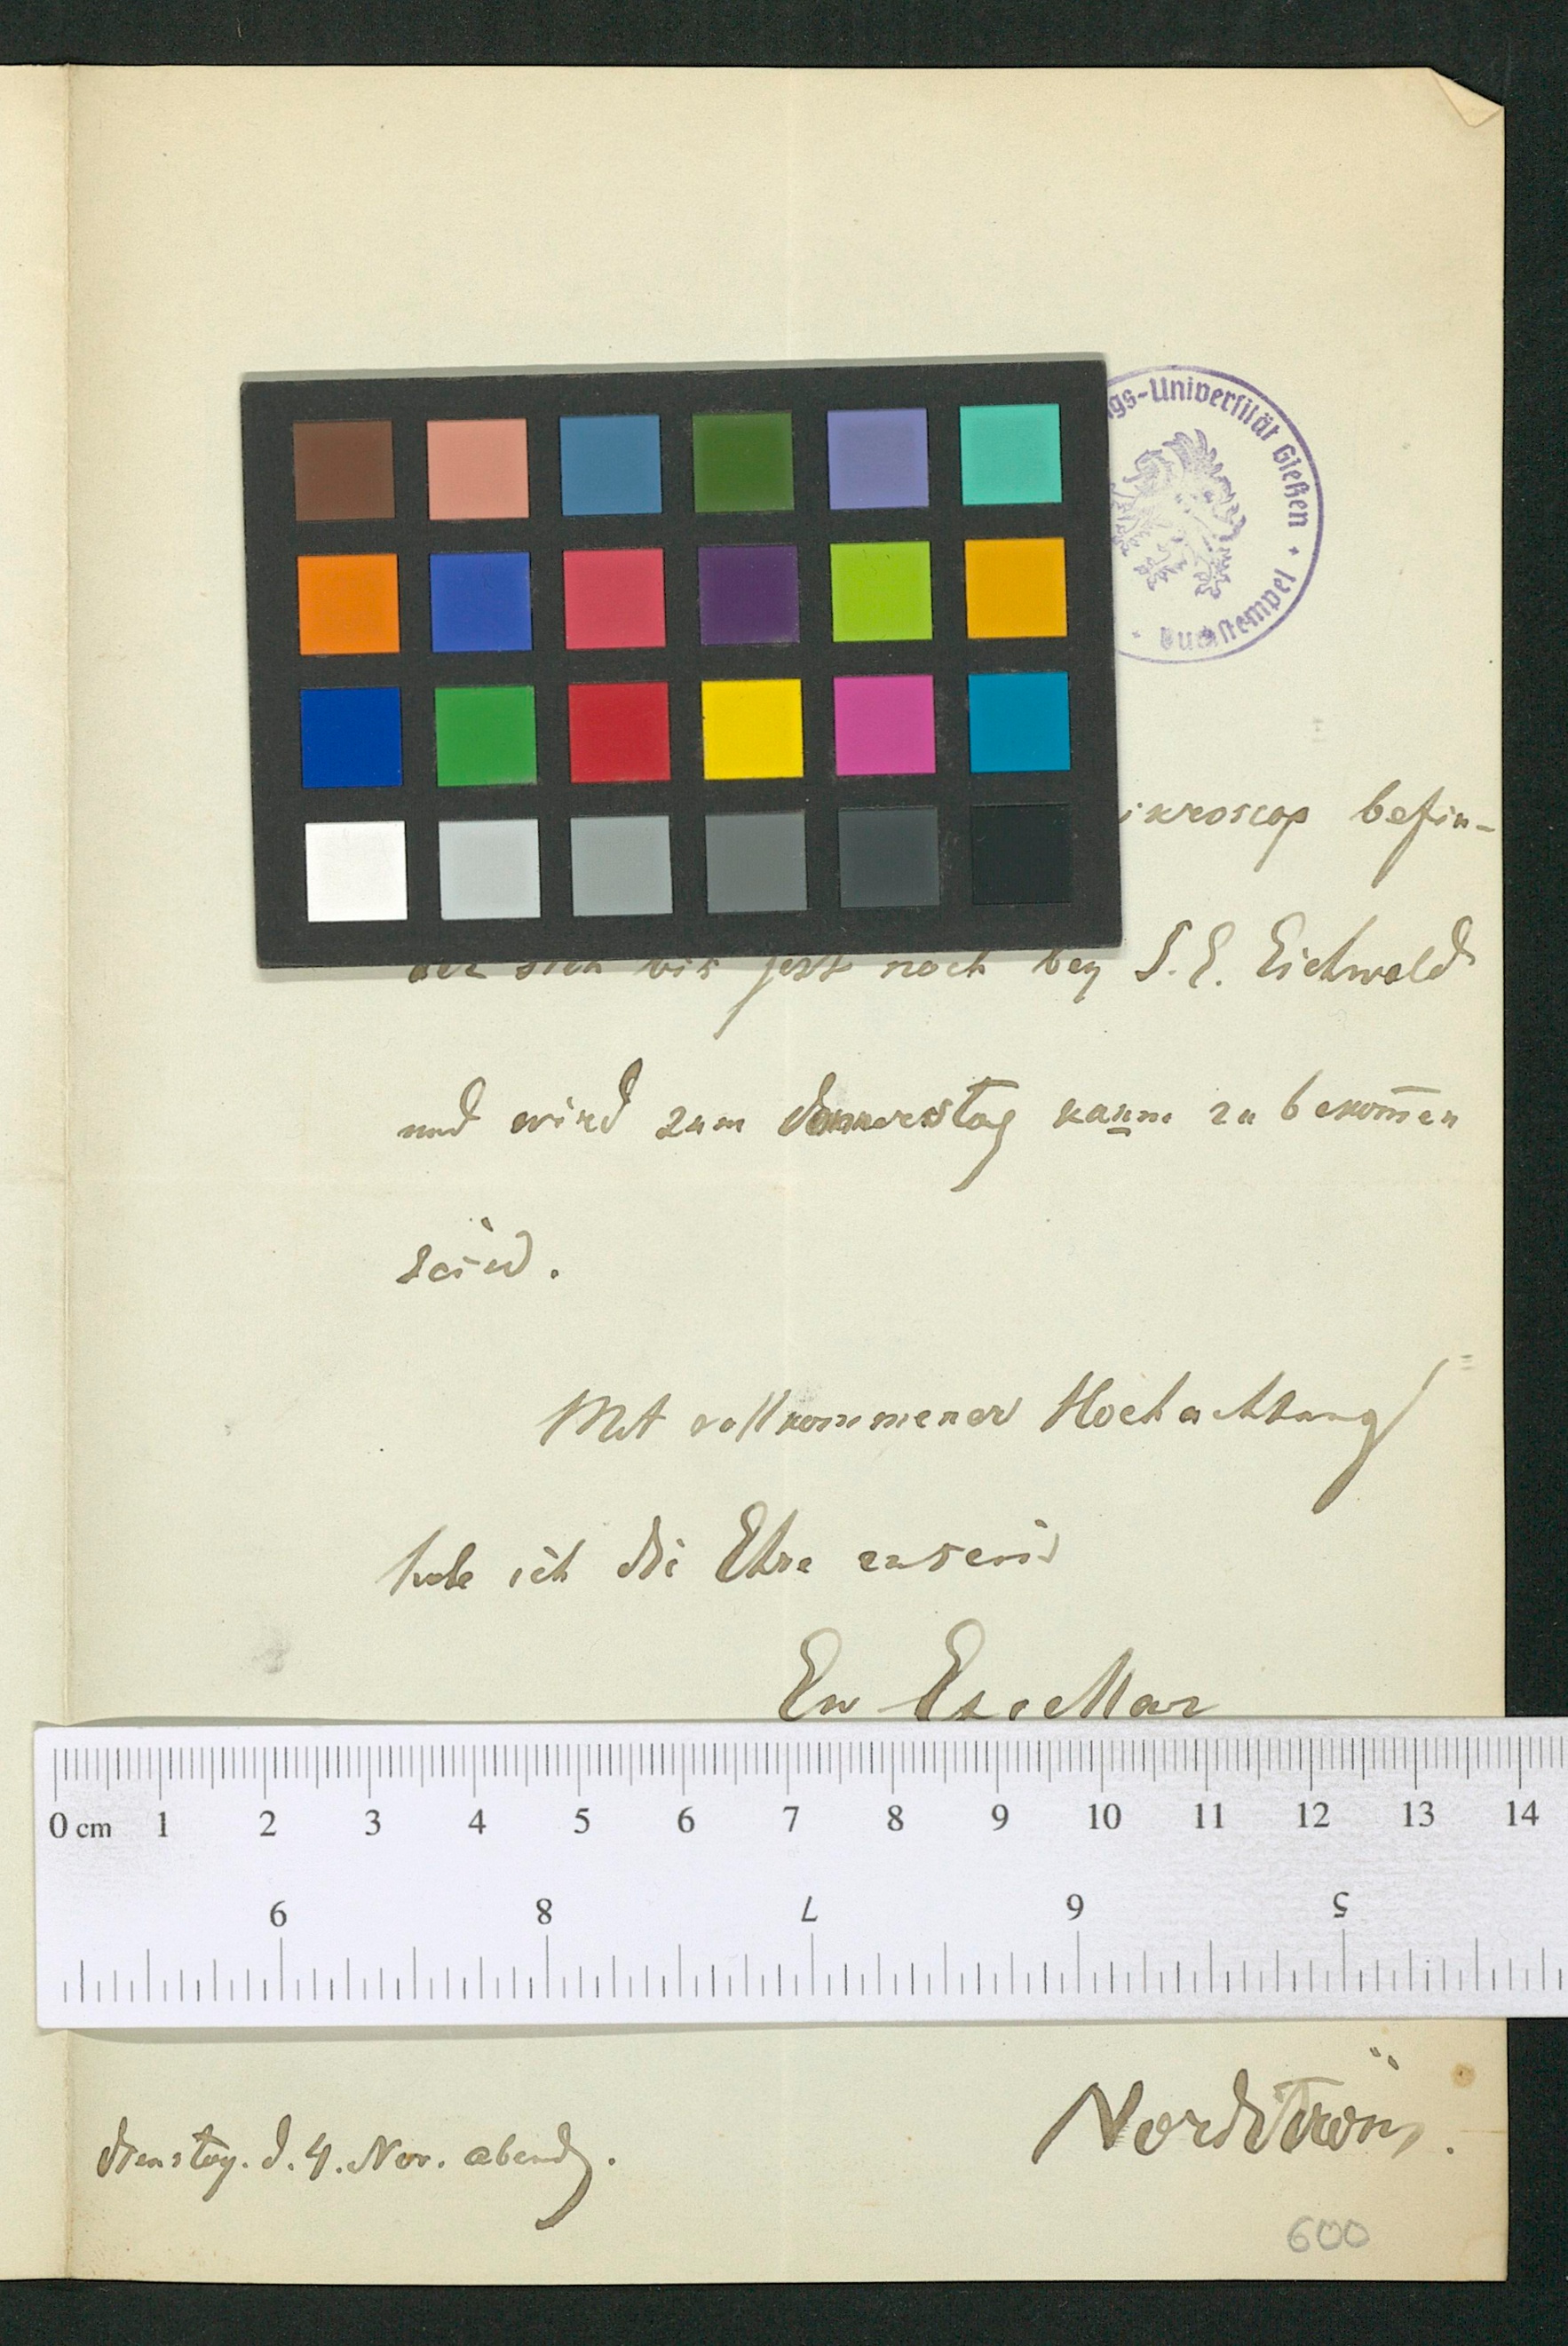 gs-Universität Gießen
Buchstempel
ikroscop befin-
det sich bis jezt noch bey S. E. Eichwald
und wird zum Donnerstag kaum zu bekom̄en
sein.
Mit vollkommener Hochachtung
habe ich die Ehre zu sein
Ew Excellenz
0 cm 1 2 3 4 5 6 7 8 9 10 11 12 13 14
9 8 7 6 5
Nordström.
Dienstag. d. 4. Nov. abends.
600